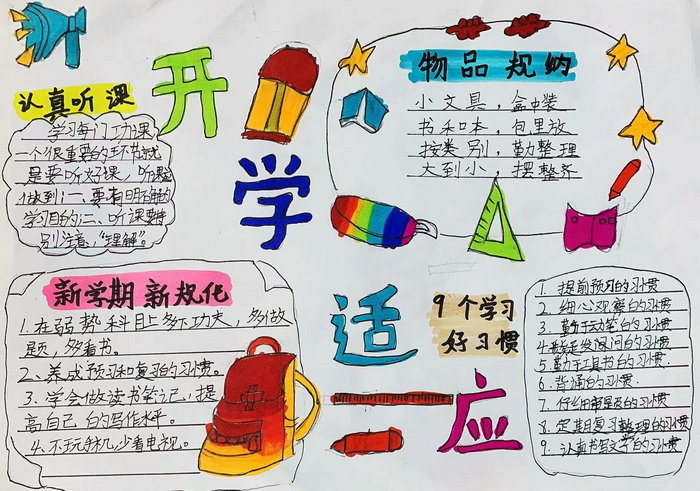 认真听课
学习每门功课
一个很重要的环节就
是要听好课，听课要
做到：一、要有明确的
学习目的；二、听课要特
别注意，“理解”。
开
学
适
应
物品规纳
小文具，盒中装
书和本，包里放
按类别，勤整理
大到小，摆整齐
新学期新规化
1.在弱势科目上多下功夫，多做
题，多看书。
2、养成预习和复习的习惯。
3、学会做读书笔记，提
高自己的写作水平。
4、不玩手机少看电视。
9个学习
好习惯
1.提前预习的习惯
2.细心观察的习惯
3.勤于动笔的习惯
4.我是发问的习惯
5.勤于工具书的习惯.
6.背诵的习惯.
7.仔细审是的习惯
8.定期复习整理的习惯
9.认真书写文字的习惯